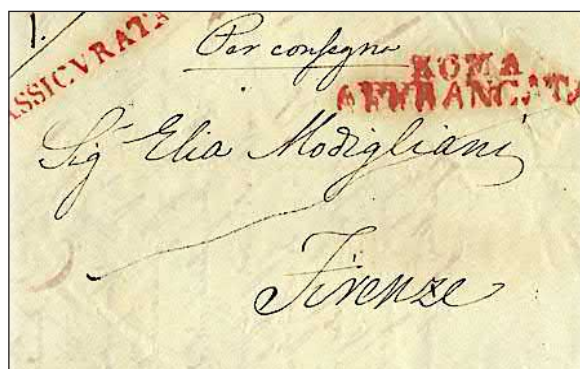 1.
ASSICVRATA
Per consegna
ROMA
AFFRANCATA
Sig.r Elia Modigliani
Firenze